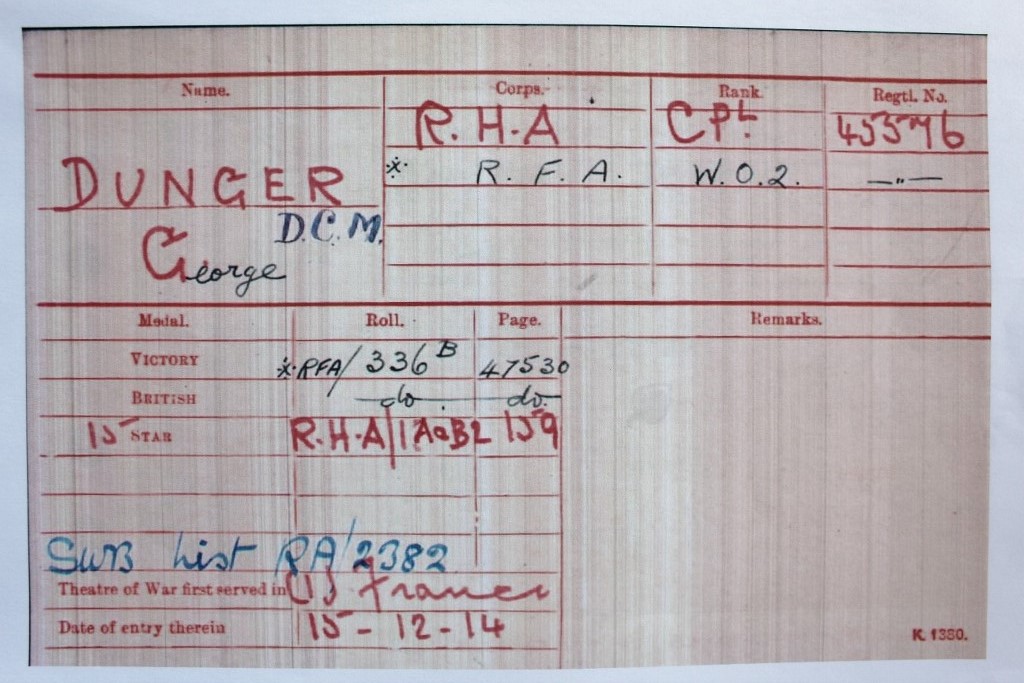 Name. Corps. Rank. Regtl. No.
R.H.A CPL. 45576
DUNGER * R. F. A. W.O.2. —"—
D.C.M.
George
Medal. Roll. Page. Remarks.
VICTORY *RFA/336B 47530
BRITISH do. do.
15 STAR R.H.A/1A&B2 159
SUB List RA/2382
Theatre of War first served in (1) France
Date of entry therein 15-12-14
K. 1380.